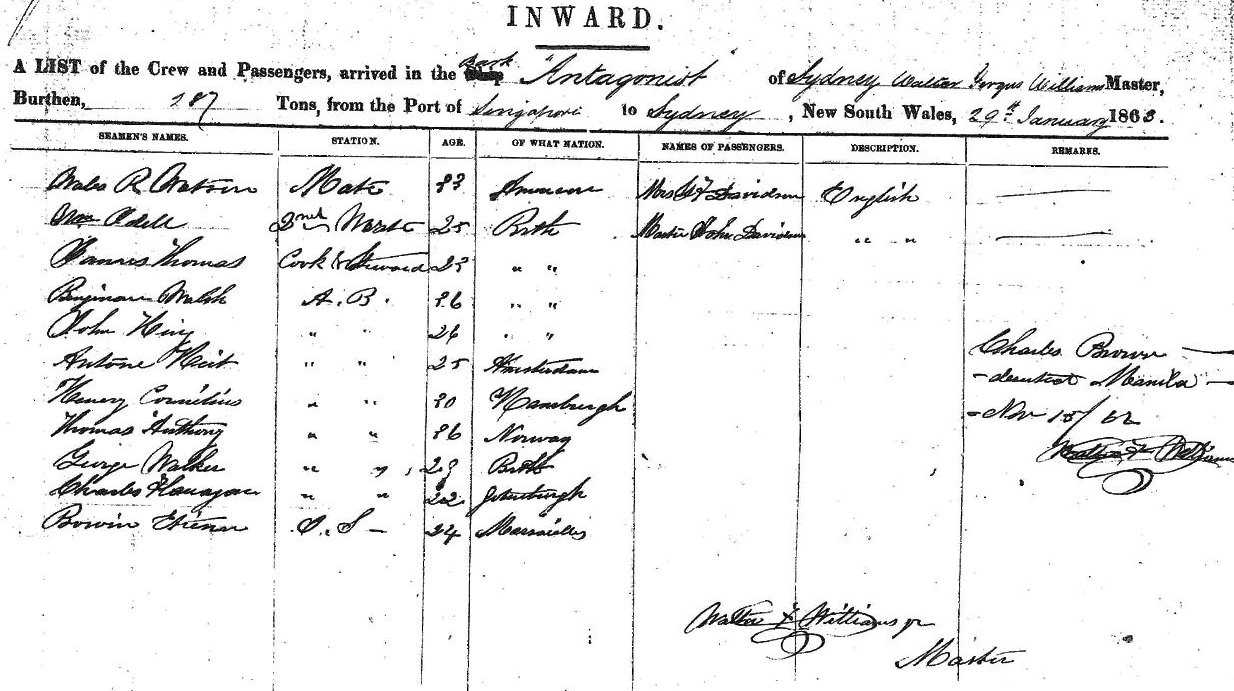 INWARD.
A LIST of the Crew and Passengers, arrived in the Bark "Antagonist" of Sydney Walter Fergus Williams Master,
Burthen, 287 Tons, from the Port of Singapore to Sydney, New South Wales, 29th January 1863.
SEAMEN'S NAMES. STATION. AGE. OF WHAT NATION. NAMES OF PASSENGERS. DESCRIPTION. REMARKS.
Wales R Watson Mate Mrs Davidson English
Wm Odell 2nd Mate 25 Master John Davidson " "
Thomas Cook & Steward 23 " "
Walsh A. B. 26 " "
John " " 26 " "
Antone " " 25 Amsterdam Charles Brown
Henry Cornelius " " 30 Hamburgh Manila
Thomas Anthony " " 26 Norway Nov 15/62
George Walker " " Walter F Williams
Charles Flanagan " " 22
O. S 24 Marseilles
Walter F Williams jr
Master